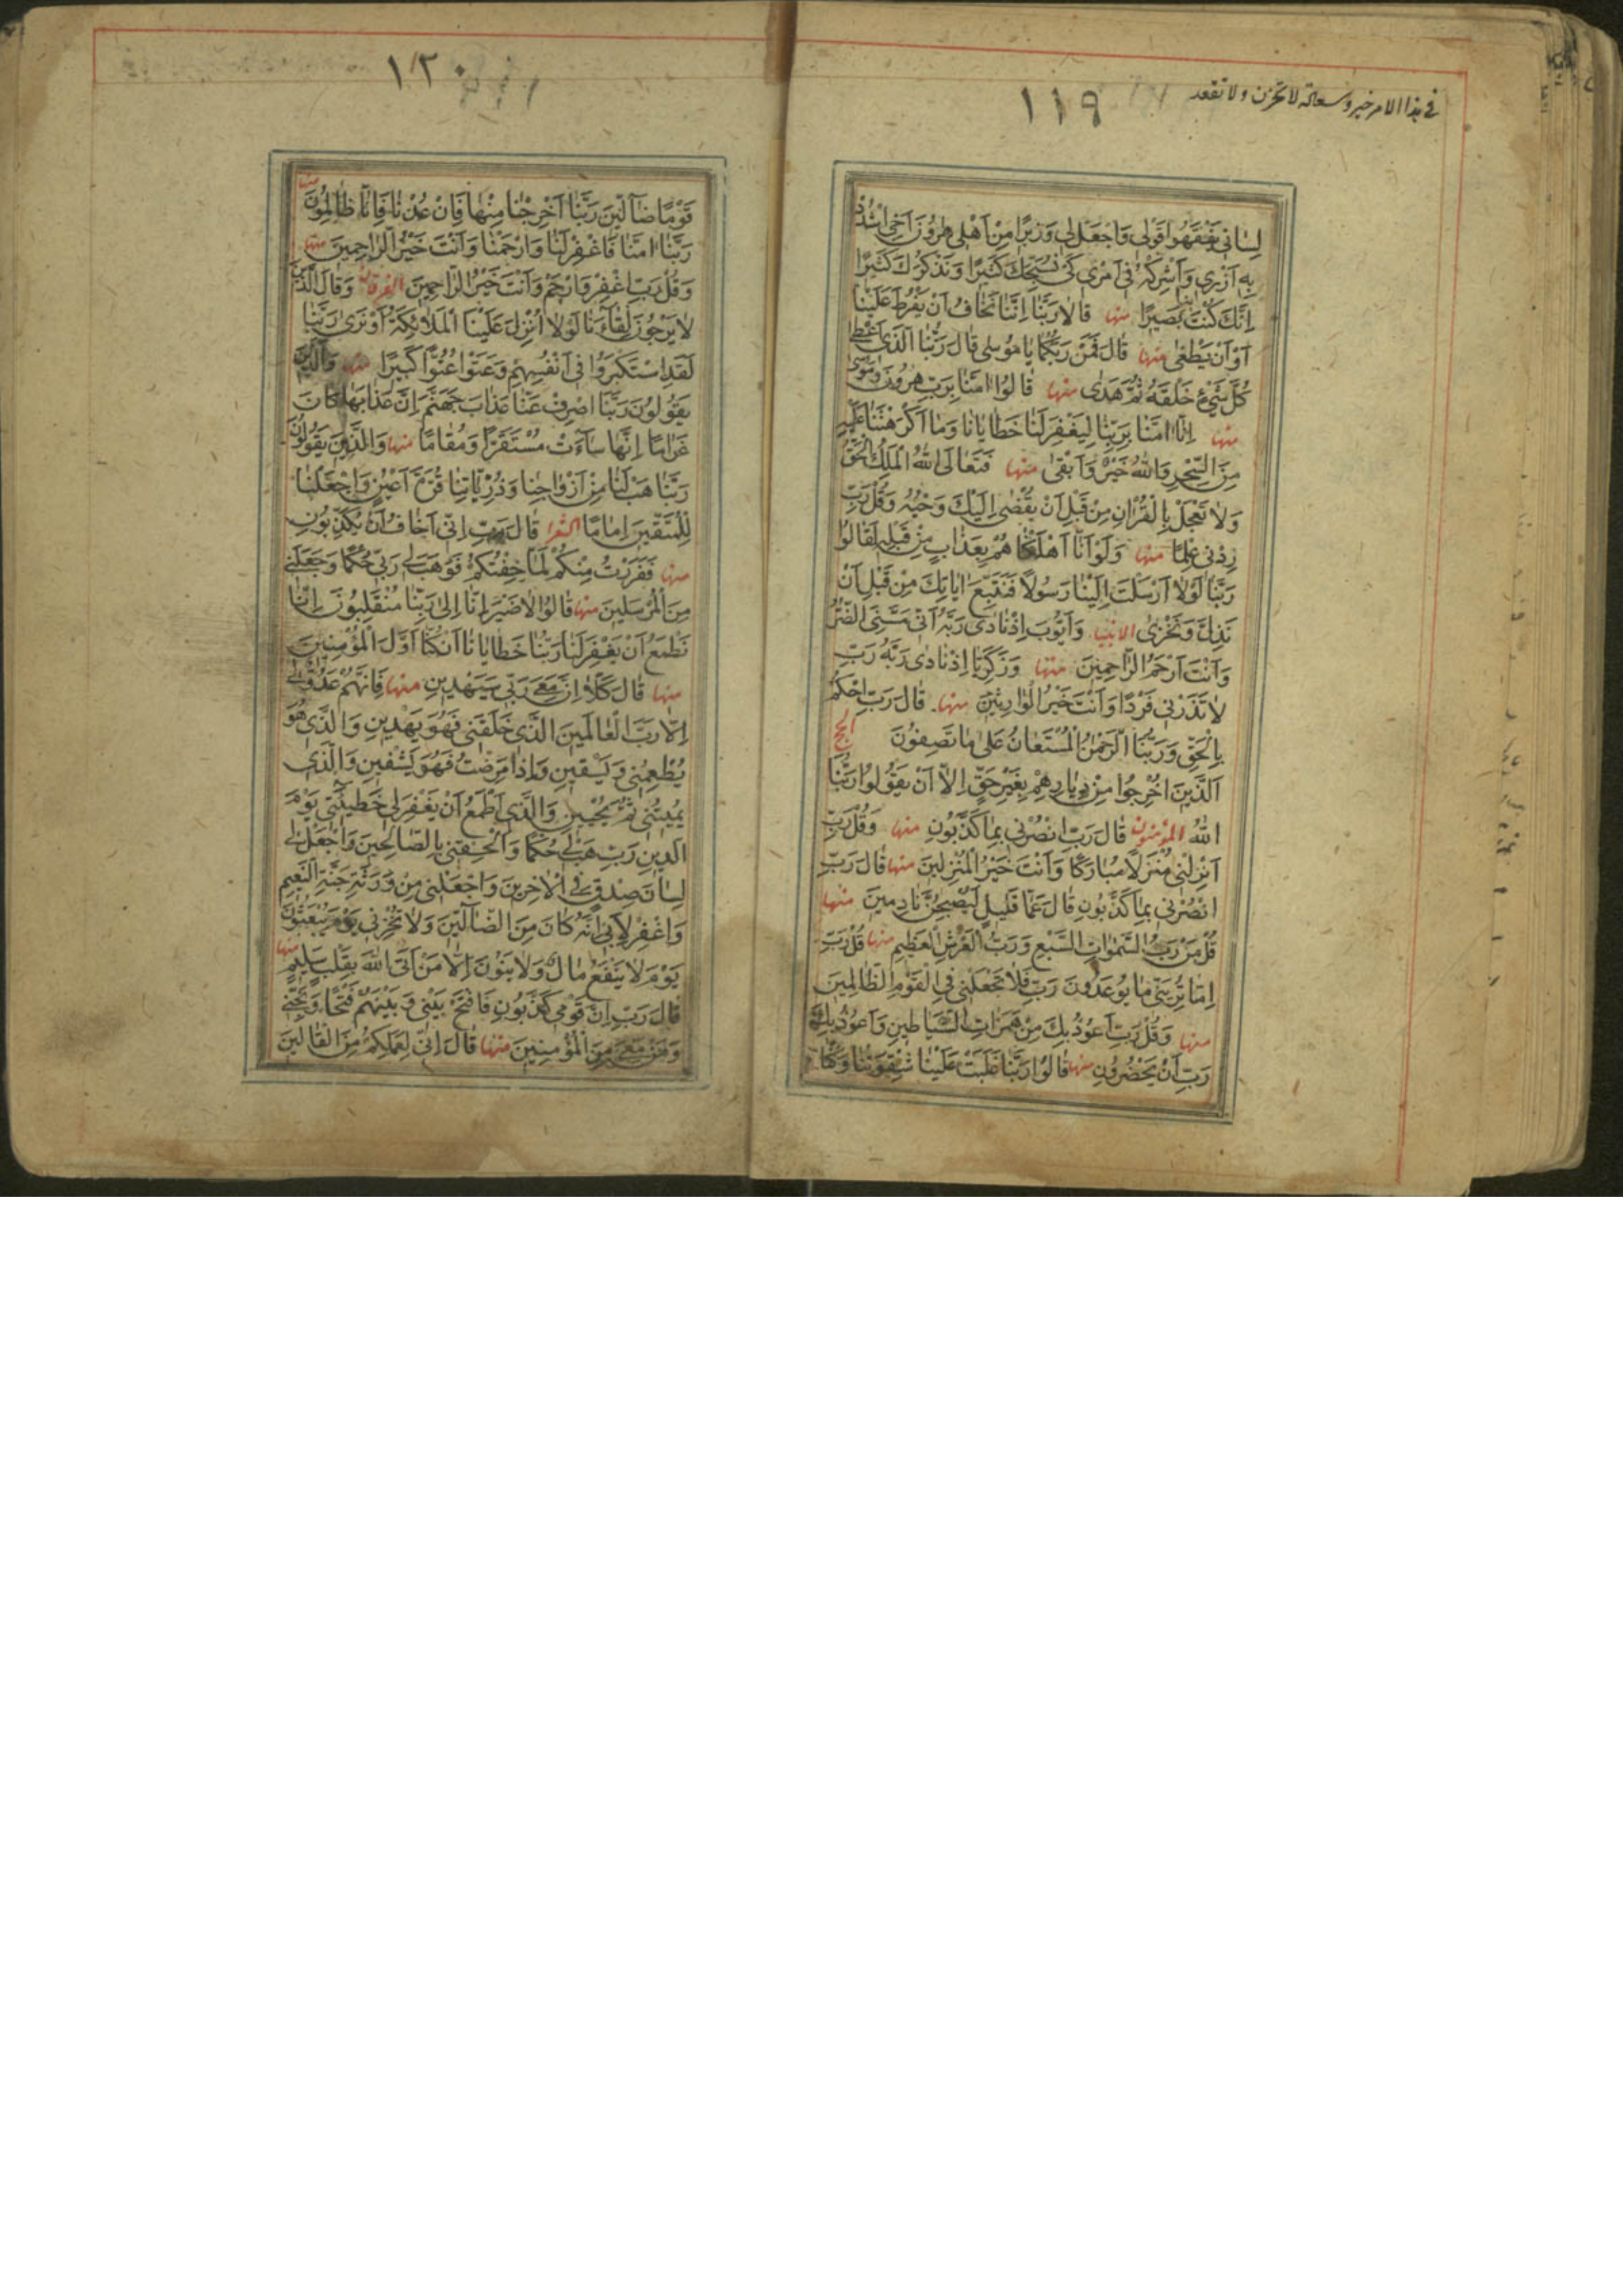 في هذا الامر خير وسعادة لا تحزن ولا تقعد
١١٩
لِسٰاني يَفْقَهُوا قَوْلي وَاجْعَلْ لي وَزيرًا مِنْ اَهْلي هٰرُونَ اَخي اشْدُدْ
بِهِ اَزْري وَاَشْرِكْهُ في اَمْري كَيْ نُسَبِّحَكَ كَثيرًا وَنَذْكُرَكَ كَثيرًا
اِنَّكَ كُنْتَ بِنٰا بَصيرًا منها قٰالا رَبَّنٰا اِنَّنٰا نَخٰافُ اَنْ يَفْرُطَ عَلَيْنٰا
اَوْ اَنْ يَطْغى منها قٰالَ فَمَنْ رَبُّكُمٰا يٰا مُوسٰى قٰالَ رَبُّنَا الَّذي اَعْطٰى
كُلَّ شَيْءٍ خَلْقَهُ ثُمَّ هَدٰى منها قٰالُوا اٰمَنّٰا بِرَبِّ هٰرُونَ وَمُوسٰى
منها اِنّٰا اٰمَنّٰا بِرَبِّنٰا لِيَغْفِرَ لَنٰا خَطٰايٰانٰا وَمٰا اَكْرَهْتَنٰا عَلَيْهِ
مِنَ السِّحْرِ وَاللهُ خَيْرٌ وَاَبْقٰى منها فَتَعٰالَى اللهُ الْمَلِكُ الْحَقُّ
وَلٰا تَعْجَلْ بِالْقُرْاٰنِ مِنْ قَبْلِ اَنْ يُقْضٰى اِلَيْكَ وَحْيُهُ وَقُلْ رَبِّ
زِدْني عِلْمًا منها وَلَوْ اَنّٰا اَهْلَكْنٰاهُمْ بِعَذٰابٍ مِنْ قَبْلِهِ لَقٰالُوا
رَبَّنٰا لَوْلٰا اَرْسَلْتَ اِلَيْنٰا رَسُولًا فَنَتَّبِعَ اٰيٰاتِكَ مِنْ قَبْلِ اَنْ
نَذِلَّ وَنَخْزٰى الانبيا وَاَيُّوبَ اِذْ نٰادٰى رَبَّهُ اَنّي مَسَّنِيَ الضُّرُّ
وَاَنْتَ اَرْحَمُ الرّٰاحِمينَ منها وَزَكَرِيّٰا اِذْ نٰادٰى رَبَّهُ رَبِّ
لٰا تَذَرْني فَرْدًا وَاَنْتَ خَيْرُ الْوٰارِثينَ منها قٰالَ رَبِّ احْكُمْ
بِالْحَقِّ وَرَبُّنَا الرَّحْمٰنُ الْمُسْتَعٰانُ عَلٰى مٰا تَصِفُونَ الحج
اَلَّذينَ اُخْرِجُوا مِنْ دِيٰارِهِمْ بِغَيْرِ حَقٍّ اِلّٰا اَنْ يَقُولُوا رَبُّنَا
اللهُ المؤمنون قٰالَ رَبِّ انْصُرْني بِمٰا كَذَّبُونِ منها وَقُلْ رَبِّ
اَنْزِلْني مُنْزَلًا مُبٰارَكًا وَاَنْتَ خَيْرُ الْمُنْزِلينَ منها قٰالَ رَبِّ
انْصُرْني بِمٰا كَذَّبُونِ قٰالَ عَمّٰا قَليلٍ لَيُصْبِحُنَّ نٰادِمينَ منها
قُلْ مَنْ رَبُّ السَّمٰوٰاتِ السَّبْعِ وَرَبُّ الْعَرْشِ الْعَظيمِ منها قُلْ رَبِّ
اِمّٰا تُرِيَنّي مٰا يُوعَدُونَ رَبِّ فَلٰا تَجْعَلْني فِي الْقَوْمِ الظّٰالِمينَ
منها وَقُلْ رَبِّ اَعُوذُ بِكَ مِنْ هَمَزٰاتِ الشَّيٰاطينِ وَاَعُوذُ بِكَ
رَبِّ اَنْ يَحْضُرُونِ منها قٰالُوا رَبَّنٰا غَلَبَتْ عَلَيْنٰا شِقْوَتُنٰا وَكُنّٰا
١٢٠
قَوْمًا ضٰالّينَ رَبَّنٰا اَخْرِجْنٰا مِنْهٰا فَاِنْ عُدْنٰا فَاِنّٰا ظٰالِمُونَ منها
رَبَّنٰا اٰمَنّٰا فَاغْفِرْ لَنٰا وَارْحَمْنٰا وَاَنْتَ خَيْرُ الرّٰاحِمينَ منها
وَقُلْ رَبِّ اغْفِرْ وَارْحَمْ وَاَنْتَ خَيْرُ الرّٰاحِمينَ الفرقان وَقٰالَ الَّذينَ
لٰا يَرْجُونَ لِقٰاءَنٰا لَوْلٰا اُنْزِلَ عَلَيْنَا الْمَلٰائِكَةُ اَوْ نَرٰى رَبَّنٰا
لَقَدِ اسْتَكْبَرُوا في اَنْفُسِهِمْ وَعَتَوْا عُتُوًّا كَبيرًا منها وَالَّذينَ
يَقُولُونَ رَبَّنَا اصْرِفْ عَنّٰا عَذٰابَ جَهَنَّمَ اِنَّ عَذٰابَهٰا كٰانَ
غَرٰامًا اِنَّهٰا سٰاءَتْ مُسْتَقَرًّا وَمُقٰامًا منها وَالَّذينَ يَقُولُونَ
رَبَّنٰا هَبْ لَنٰا مِنْ اَزْوٰاجِنٰا وَذُرِّيّٰاتِنٰا قُرَّةَ اَعْيُنٍ وَاجْعَلْنٰا
لِلْمُتَّقينَ اِمٰامًا الشعرا قٰالَ رَبِّ اِنّي اَخٰافُ اَنْ يُكَذِّبُونِ
منها فَفَرَرْتُ مِنْكُمْ لَمّٰا خِفْتُكُمْ فَوَهَبَ لي رَبّي حُكْمًا وَجَعَلَني
مِنَ الْمُرْسَلينَ منها قٰالُوا لٰا ضَيْرَ اِنّٰا اِلٰى رَبِّنٰا مُنْقَلِبُونَ اِنّٰا
نَطْمَعُ اَنْ يَغْفِرَ لَنٰا رَبُّنٰا خَطٰايٰانٰا اَنْ كُنّٰا اَوَّلَ الْمُؤْمِنينَ
منها قٰالَ كَلّٰا اِنَّ مَعي رَبّي سَيَهْدينِ منها فَاِنَّهُمْ عَدُوٌّ لي
اِلّٰا رَبَّ الْعٰالَمينَ الَّذي خَلَقَني فَهُوَ يَهْدينِ وَالَّذي هُوَ
يُطْعِمُني وَيَسْقينِ وَاِذٰا مَرِضْتُ فَهُوَ يَشْفينِ وَالَّذي
يُميتُني ثُمَّ يُحْيينِ وَالَّذي اَطْمَعُ اَنْ يَغْفِرَ لي خَطيئَتي يَوْمَ
الدّينِ رَبِّ هَبْ لي حُكْمًا وَاَلْحِقْني بِالصّٰالِحينَ وَاجْعَلْ لي
لِسٰانَ صِدْقٍ فِي الْاٰخِرينَ وَاجْعَلْني مِنْ وَرَثَةِ جَنَّةِ النَّعيمِ
وَاغْفِرْ لِاَبي اِنَّهُ كٰانَ مِنَ الضّٰالّينَ وَلٰا تُخْزِني يَوْمَ يُبْعَثُونَ
يَوْمَ لٰا يَنْفَعُ مٰالٌ وَلٰا بَنُونَ اِلّٰا مَنْ اَتَى اللهَ بِقَلْبٍ سَليمٍ منها
قٰالَ رَبِّ اِنَّ قَوْمي كَذَّبُونِ فَافْتَحْ بَيْني وَبَيْنَهُمْ فَتْحًا وَنَجِّني
وَمَنْ مَعي مِنَ الْمُؤْمِنينَ منها قٰالَ اِنّي لِعَمَلِكُمْ مِنَ الْقٰالينَ